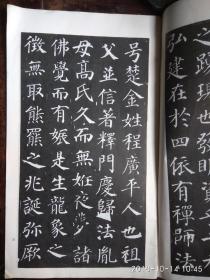 之踊現也發明
弘建在於四依有禪師法
号楚金姓程廣平人也祖
父並信著釋門慶歸法胤
母高氏久而無妊夜夢諸
佛覺而有娠是生龍象之
徵無取熊羆之兆誕弥厥
2019-10-14 10:45